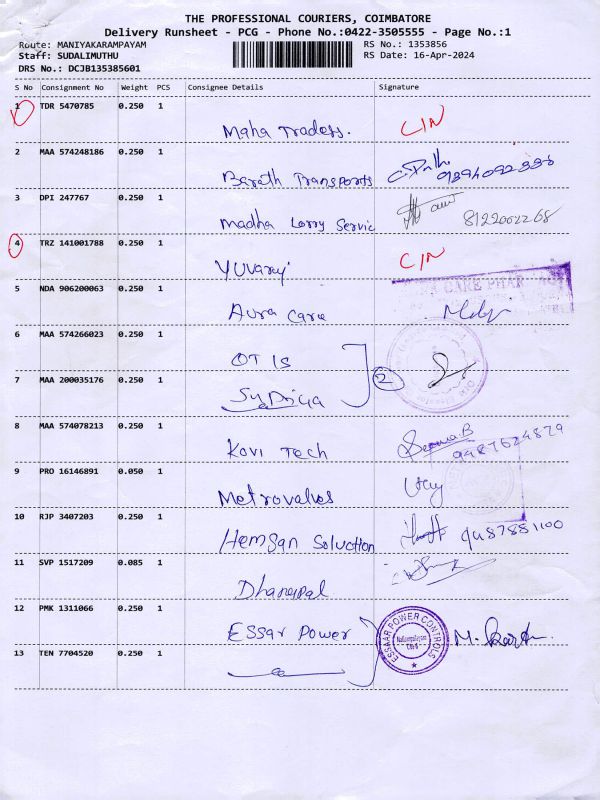 THE PROFESSIONAL COURIERS, COIMBATORE
Delivery Runsheet - PCG - Phone No.:0422-3505555 - Page No.:1
Route: MANIYAKARAMPAYAM RS No.: 1353856
Staff: SUDALIMUTHU RS Date: 16-Apr-2024
DRS No.: DCJB135385601
S No Consignment No Weight PCS Consignee Details Signature
1 TDR 5470785 0.250 1
Maha Traders. C/N
2 MAA 574248186 0.250 1
Barath Transports
3 DPI 247767 0.250 1
Madha Lorry Servic 8122002268
4 TRZ 141001788 0.250 1
Yuvaraj C/N
5 NDA 906200063 0.250 1
Aura Care
6 MAA 574266023 0.250 1
OTIS
7 MAA 200035176 0.250 1
2
8 MAA 574078213 0.250 1
Kovi Tech 9487624879
9 PRO 16146891 0.050 1
Metrovalves
10 RJP 3407203 0.250 1
Hemsan Soluction 9487881100
11 SVP 1517209 0.085 1
Dhanapal
12 PMK 1311066 0.250 1
Essar Power ESSAAR POWER CONTROLS
13 TEN 7704520 0.250 1